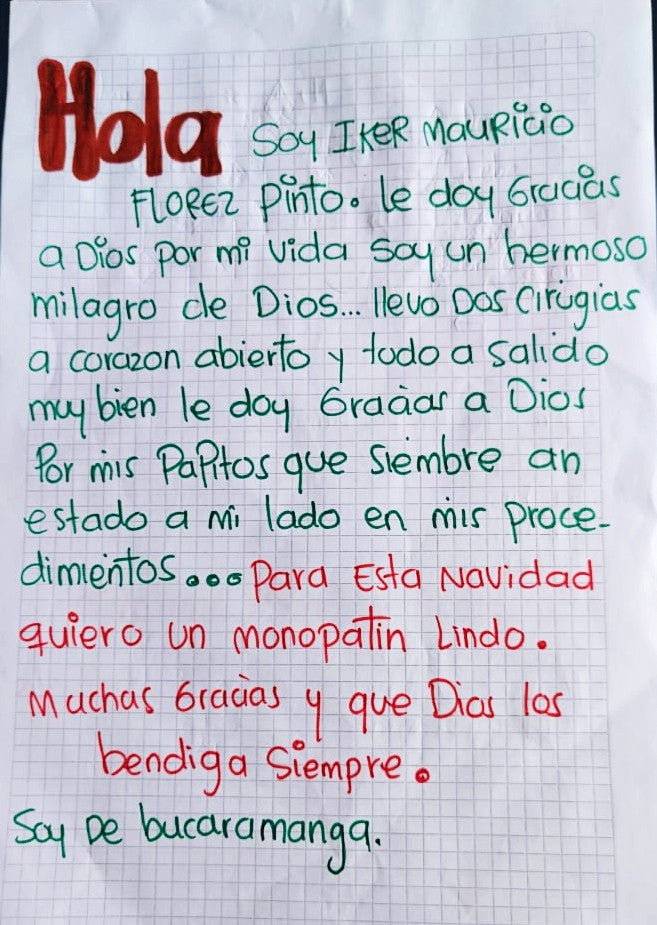 Hola Soy IKER Mauricio
FLOREZ Pinto. le doy Gracias
a Dios por mi vida soy un hermoso
milagro de Dios... llevo Dos Cirugias
a corazon abierto y todo a salido
muy bien le doy Gracias a Dios
Por mis PaPitos que siembre an
estado a mi lado en mis proce-
dimientos... Para Esta Navidad
quiero un monopatin Lindo.
Muchas Gracias y que Dios los
bendiga Siempre.
Soy De bucaramanga.